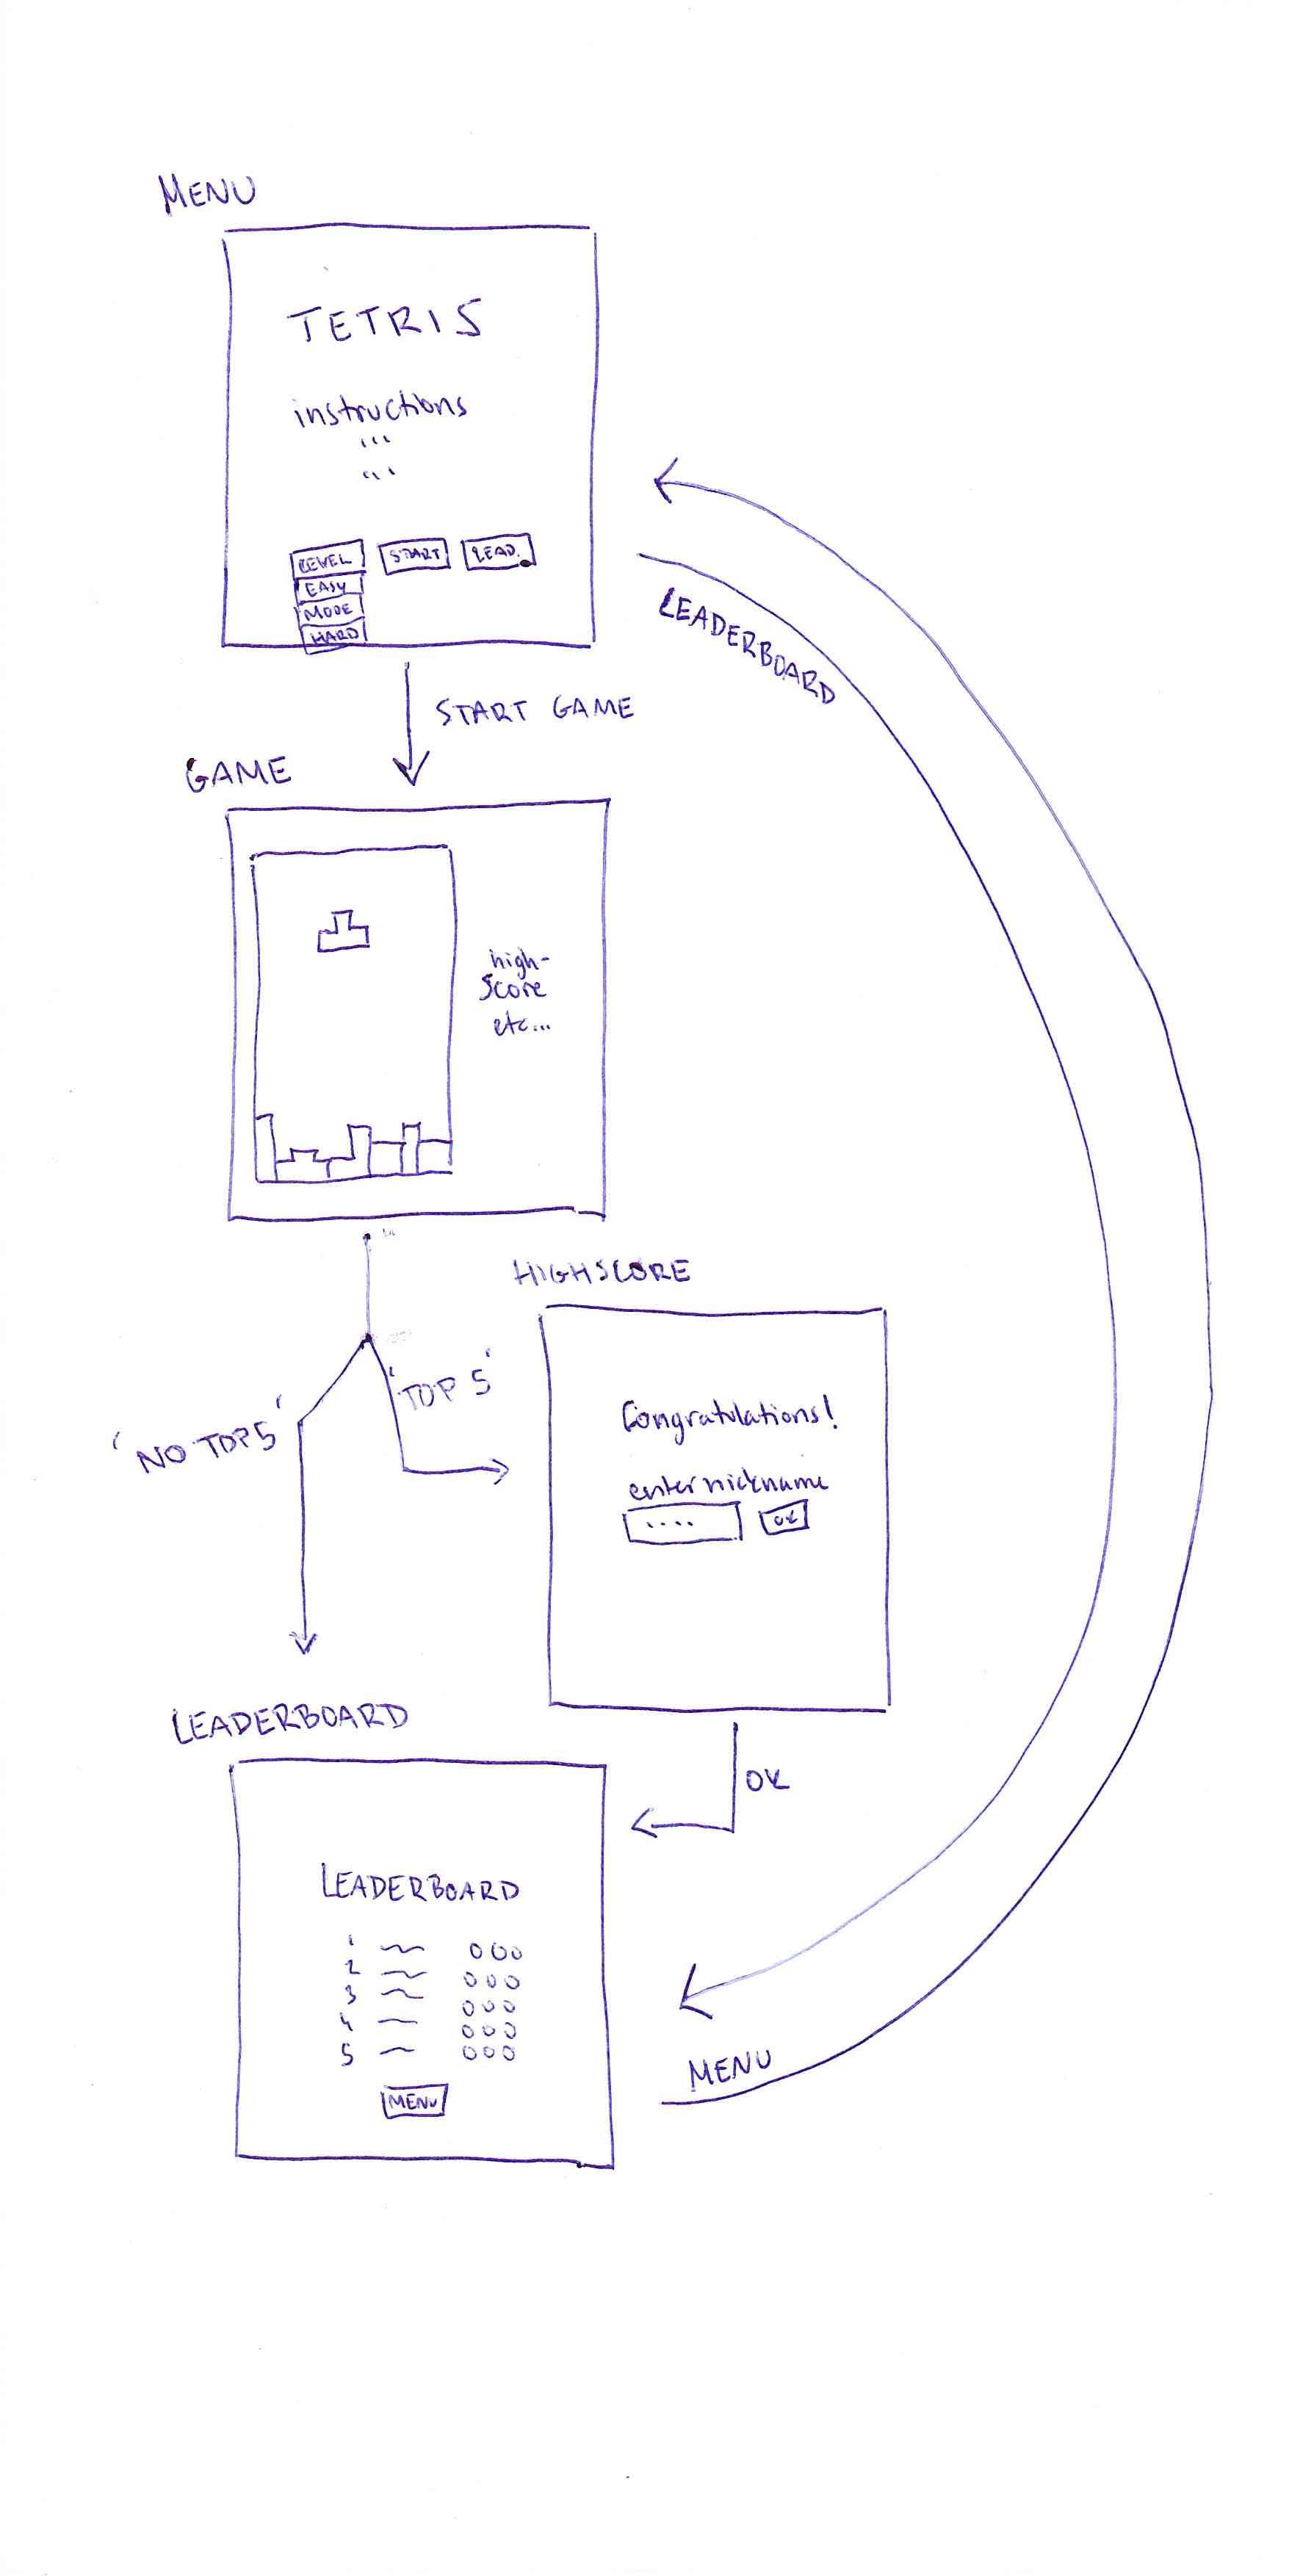 MENU
TETRIS
instructions
...
...
LEVEL START LEAD.
EASY
MODE
HARD
LEADERBOARD
START GAME
GAME
high-
score
etc...
HIGHSCORE
'TOP 5'
'NO TOP 5'
Congratulations!
enter nickname
.... OK
LEADERBOARD
OK
LEADERBOARD
1 000
2 000
3 000
4 000
5 000
MENU
MENU